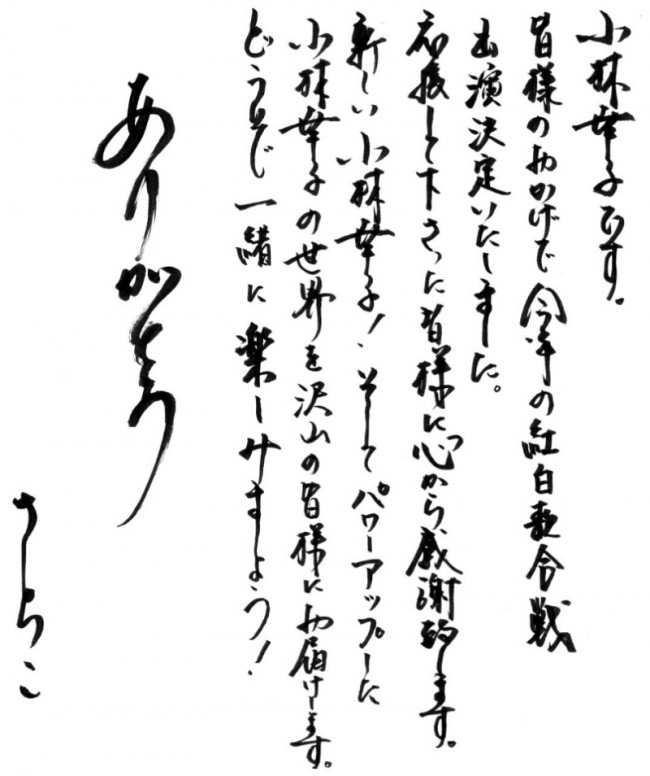 小林幸子です。
皆様のおかげで今年の紅白歌合戦
出演決定いたしました。
応援して下さった皆様に心から感謝致します。
新しい小林幸子!そしてパワーアップした
小林幸子の世界を沢山の皆様にお届けします。
どうぞ一緒に楽しみましょう!
ありがとう
さちこ